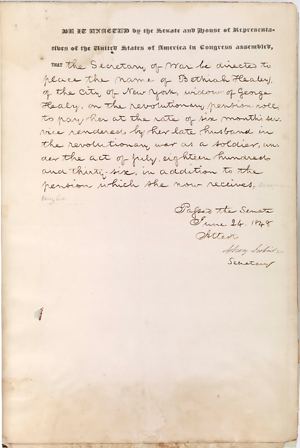 BE IT ENACTED by the Senate and House of Representa-
tives of the United States of America in Congress assembled,
THAT the Secretary of War be directed to
place the name of Bethiah Healy,
of the City of New York, widow of George
Healy, on the revolutionary pension roll,
to pay her at the rate of six months ser-
vice rendered by her late husband in
the revolutionary war as a soldier, un-
der the act of july, eighteen hundred
and thirty-six, in addition to the
pension which she now receives,
Passed the Senate
June 24. 1848
Attest
Secretary